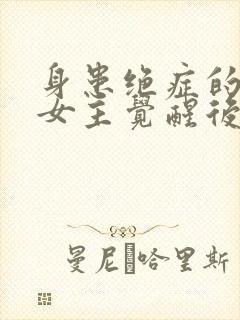 身患绝症的
女主覺醒後
曼尼·哈里斯